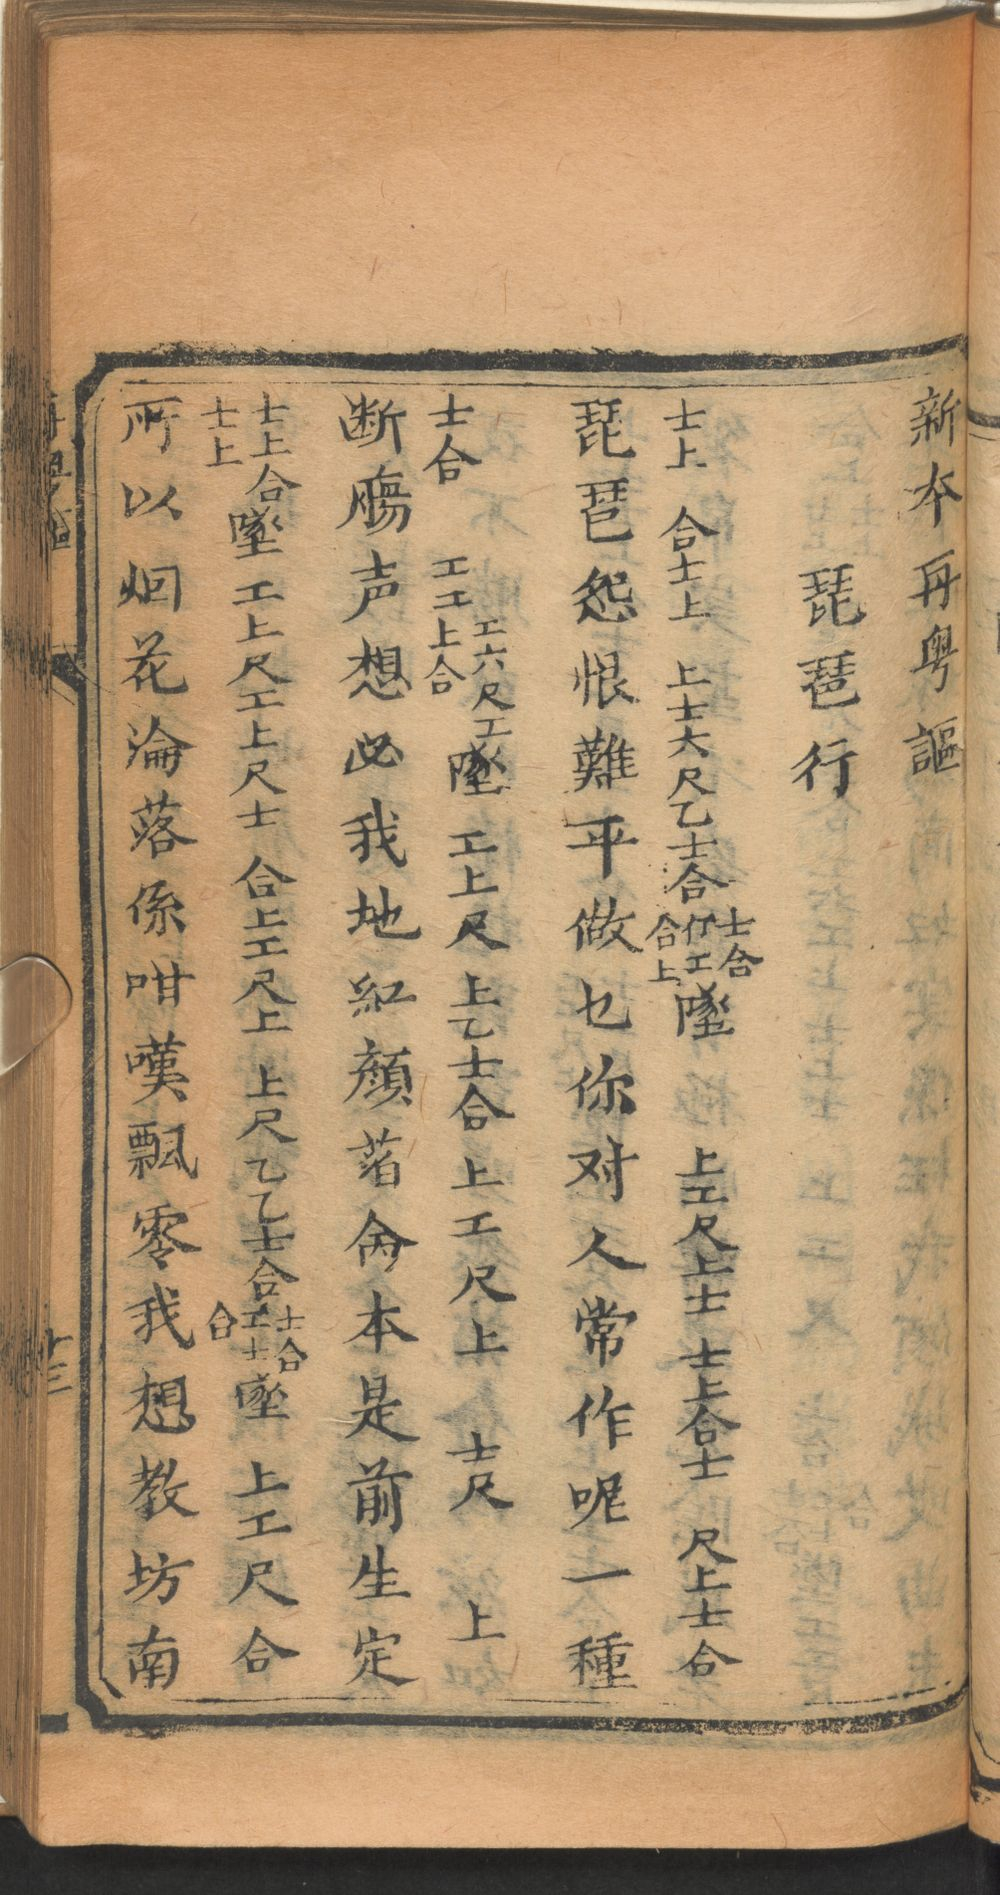 新本再粵謳
琵琶行
士上 合士上 上士六尺乙士合 士合 仩工 合上 墜 上工尺上士 士上合士 尺上士合
琵琶怨恨難平做乜你对人常作呢一種
士合 工工上合 工六尺工 墜 工上尺 上乙士合 上工尺上 士尺 上
断膓声想必我地紅顏薄命本是前生定
士上合 士上 墜 工上尺工上尺士 合上工尺上 上尺乙乙士合 士合 工士 合 墜 上工尺合
所以烟花淪落係咁嘆飄零我想教坊南
十三